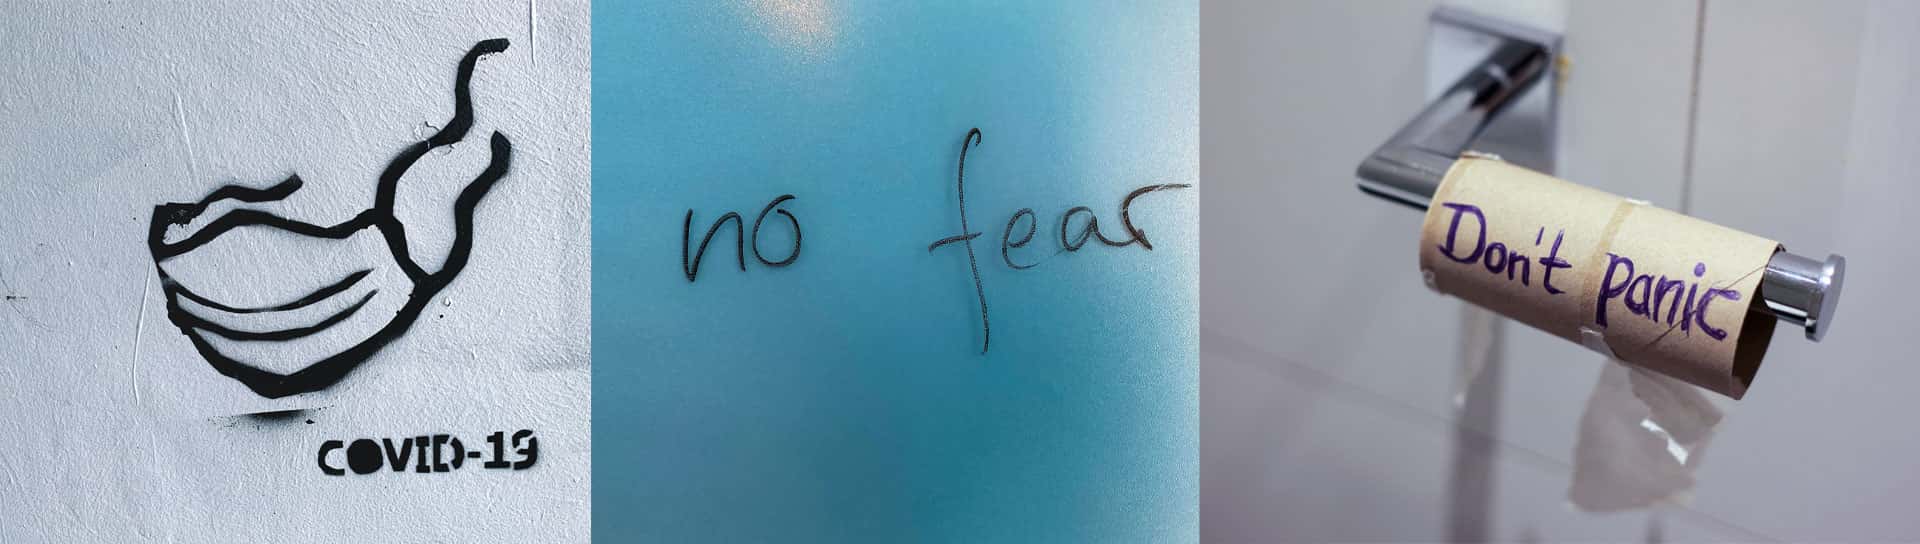 COVID-19
no fear
Don't panic